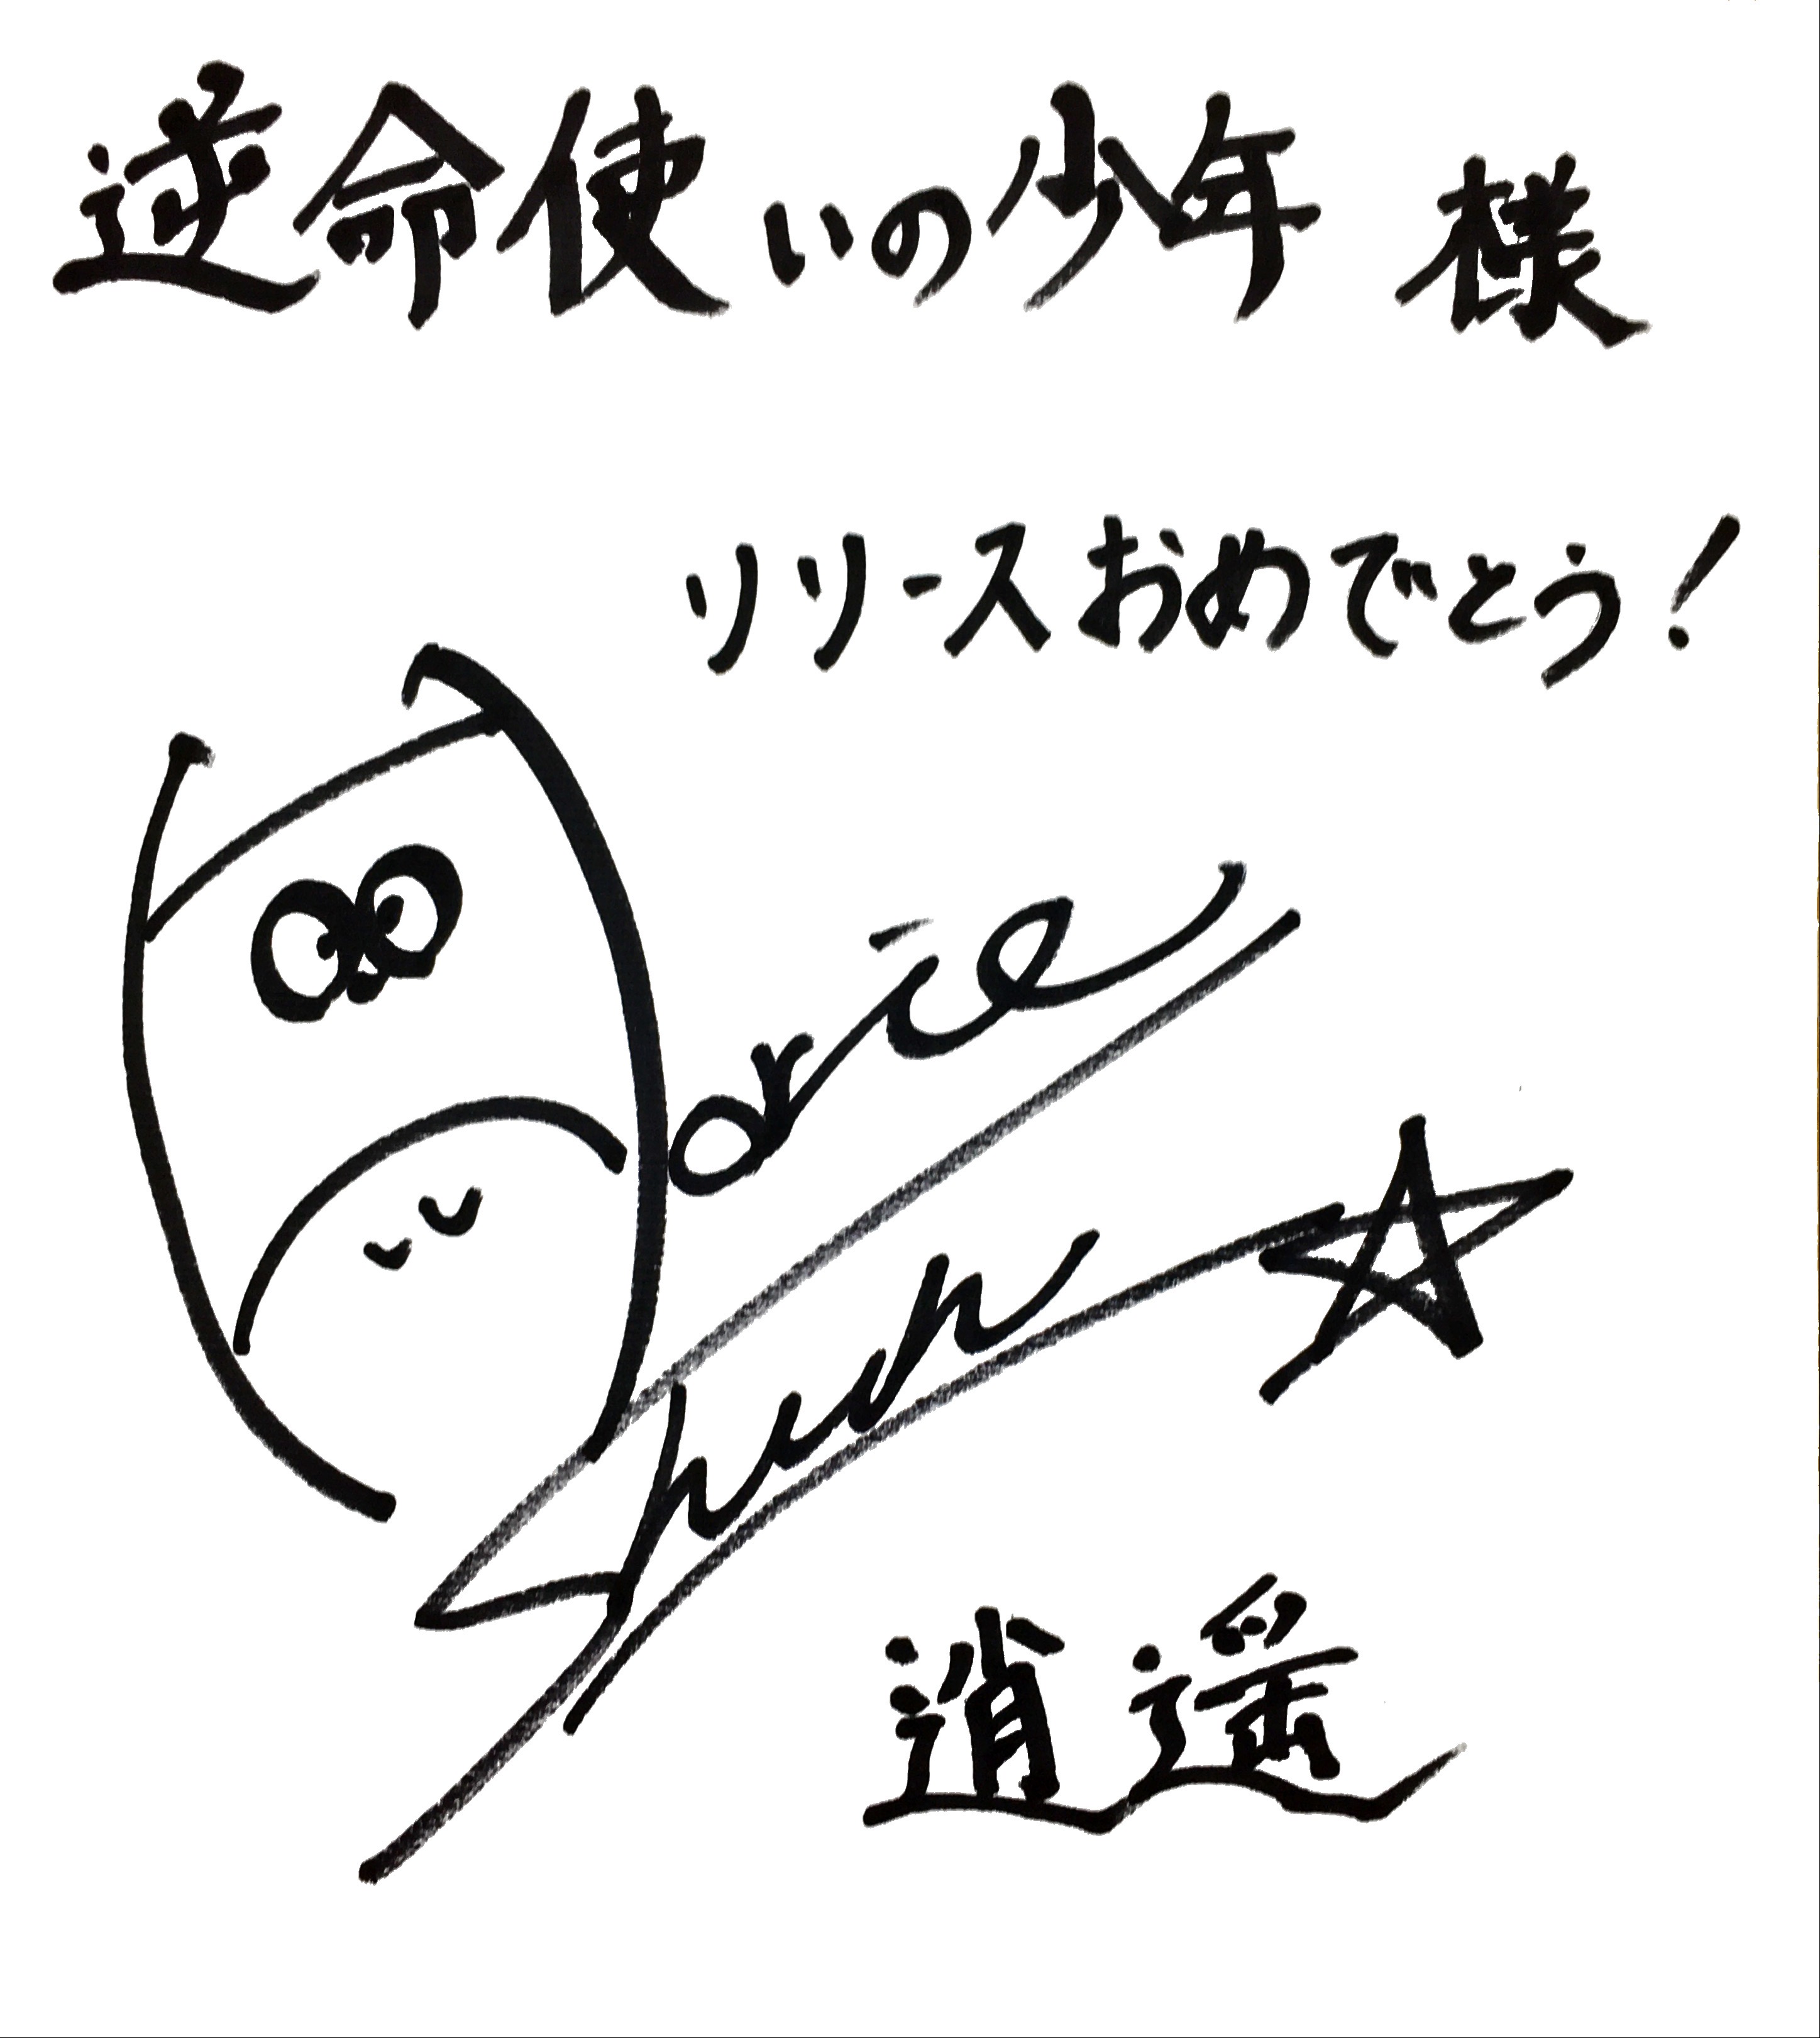 逆命使いの少年 様
リリースおめでとう!
逍遥